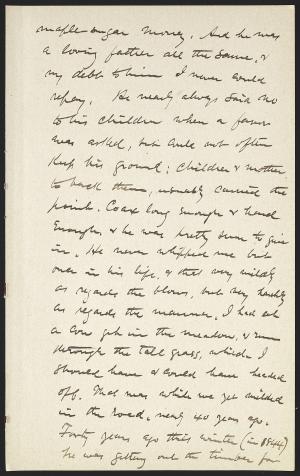 maple-sugar money. And he was
a loving father all the same, &
my debt to him I never could
repay. He nearly always said no
to his children when a favor
was asked, but could not often
keep his ground; children & mother
to back them, usually carried the
point. Coax long enough & hard
enough & he was pretty sure to give
in. He never whipped me but
once in his life, & that very mildly
as regards the blows, but very harshly
as regards the manner. I had let
a cow get in the meadow, & run
through the tall grass, which I
should have & could have headed
off. That was while we yet milked
in the road, nearly 40 years ago.
Forty years ago this winter (in 1844)
he was getting out the timber for